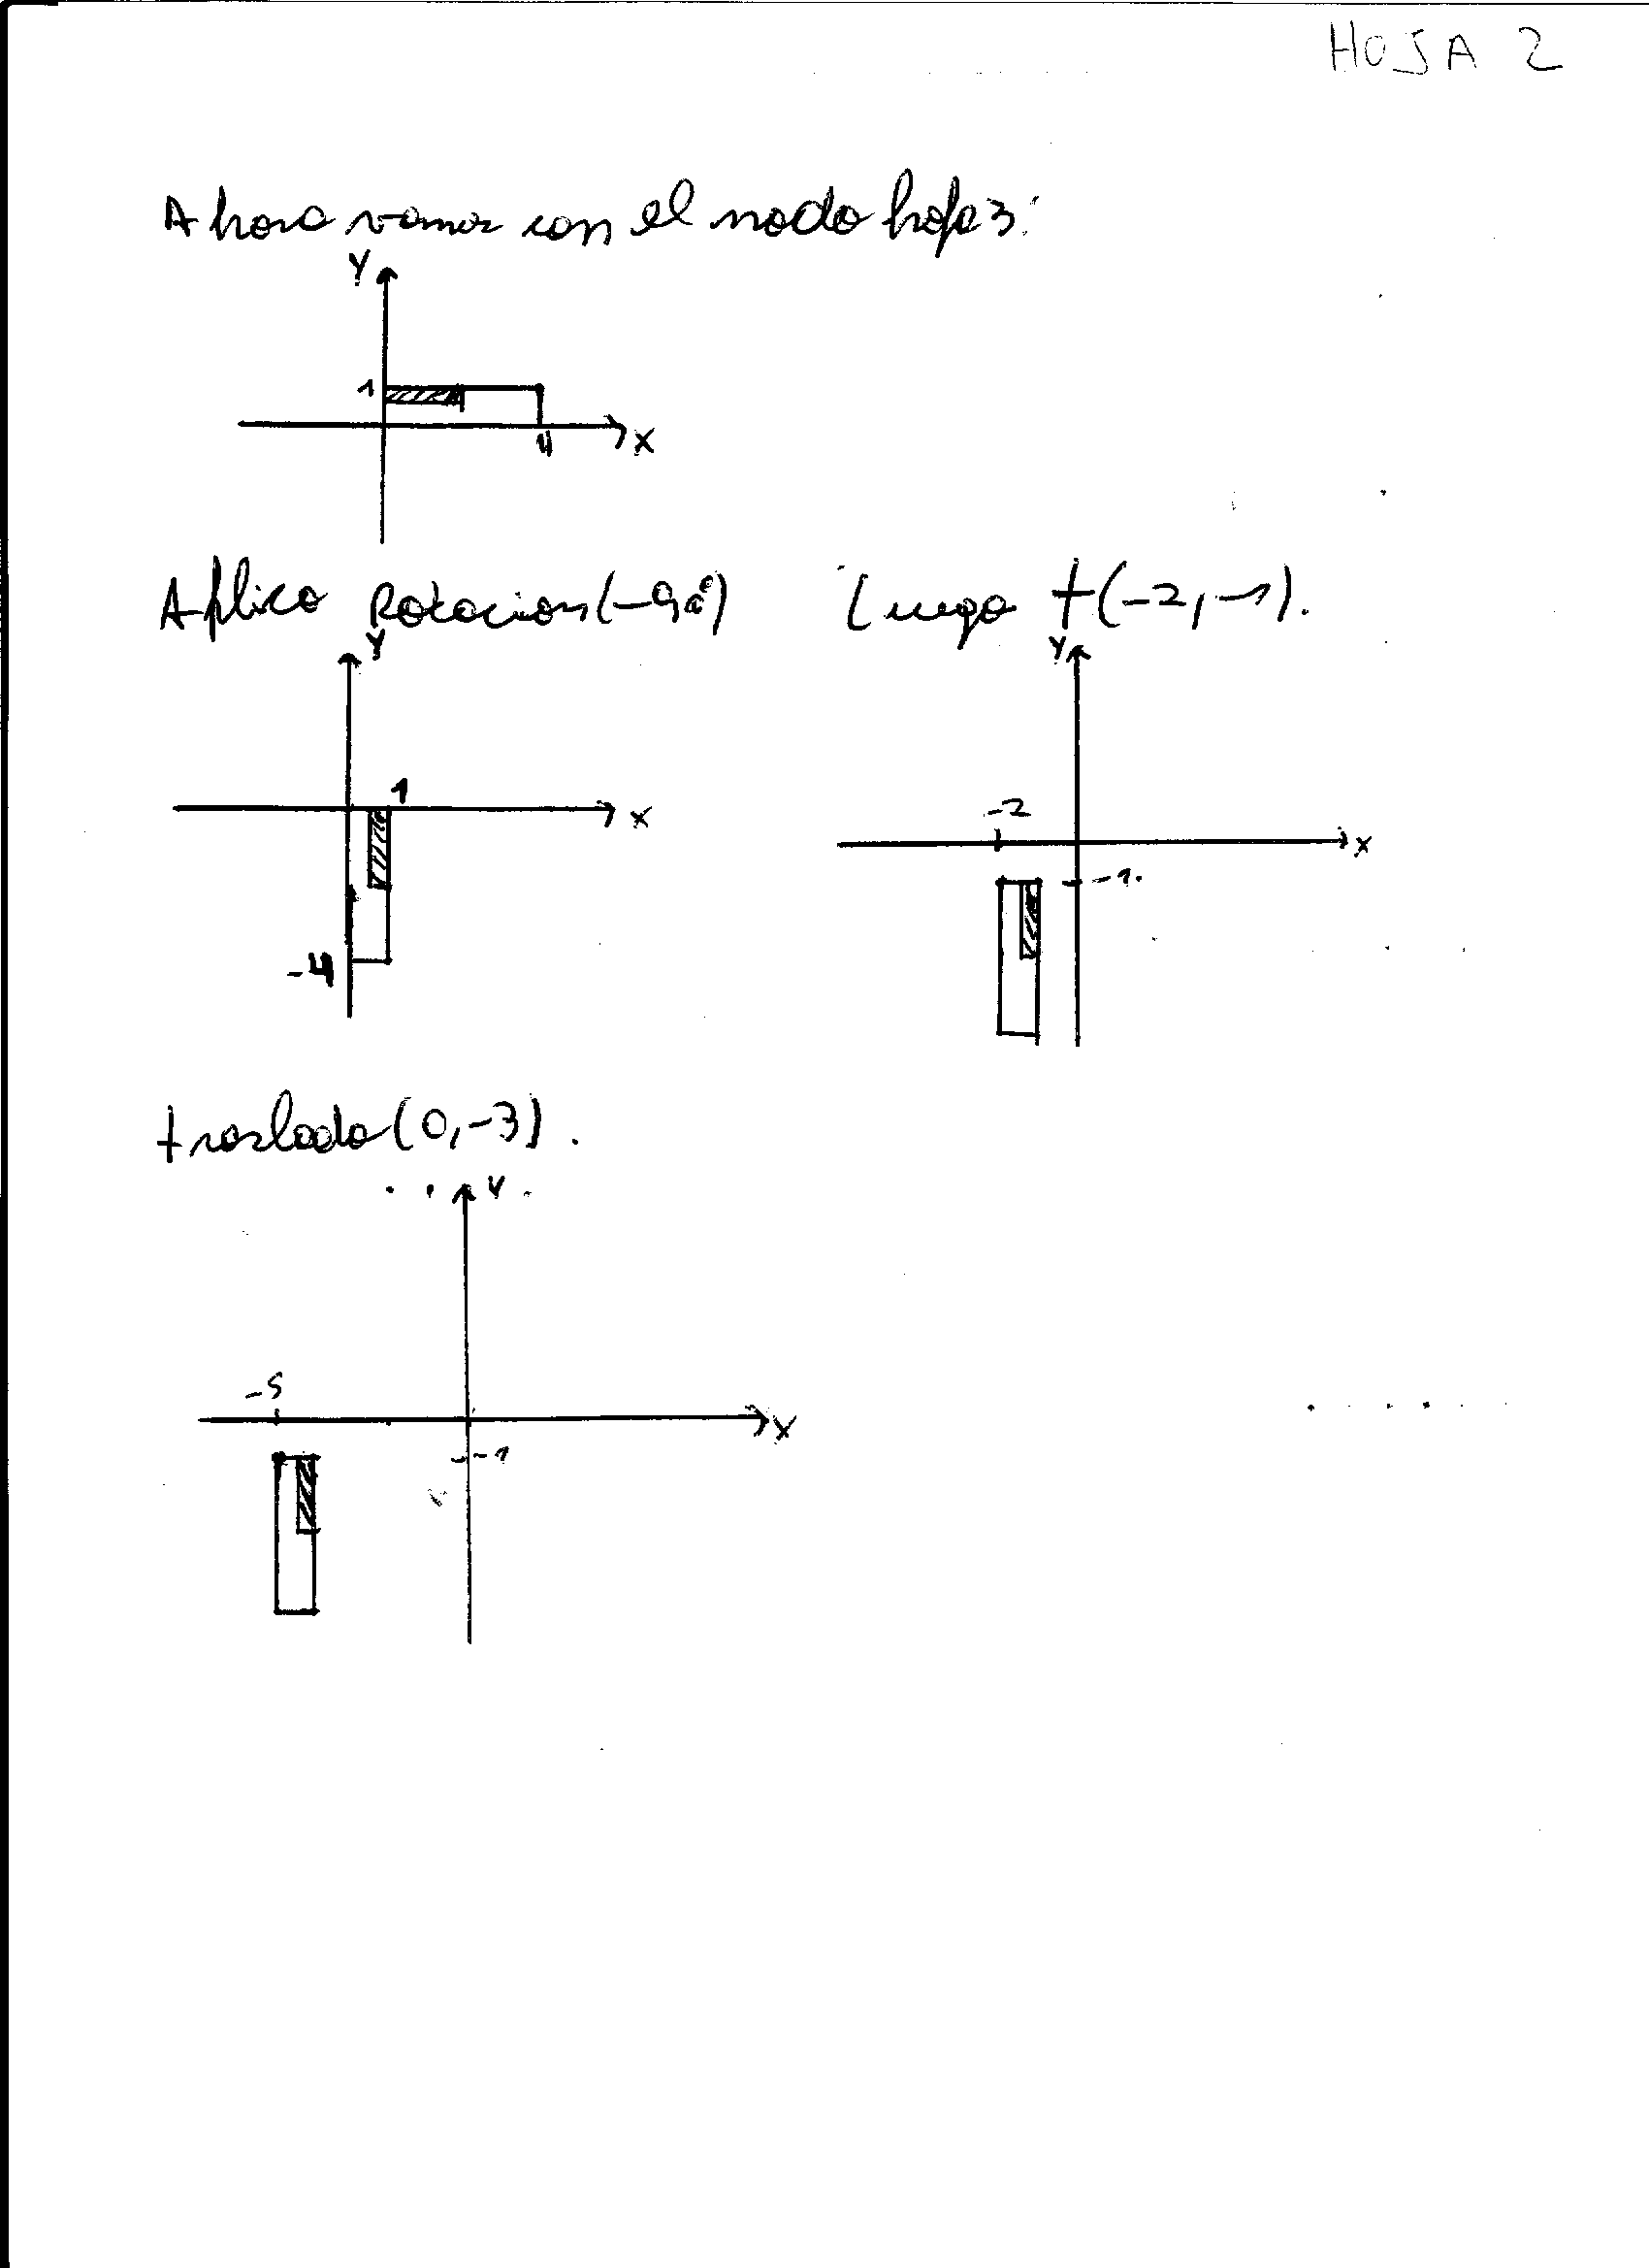 HOJA 2
Ahora vamos con el nodo hoja 3:
Y
1
4 X
Aplico Rotacion(-90°) Luego T(-2,-1).
Y Y
1
X
-2
X
-1.
-4
traslado(0,-3).
Y
-5
X
-1